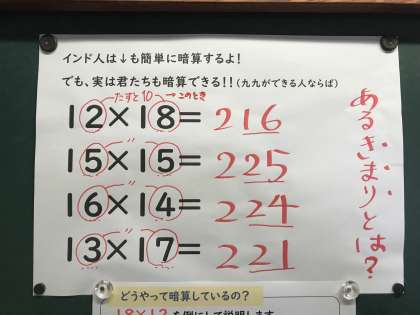 インド人は↓も簡単に暗算するよ!
でも、実は君たちも暗算できる!!(九九ができる人ならば)
たすと10 →このとき
12×18=216
15×15=225
16×14=224
13×17=221
あるきまりとは?
どうやって暗算しているの?
18×12を例にして説明します